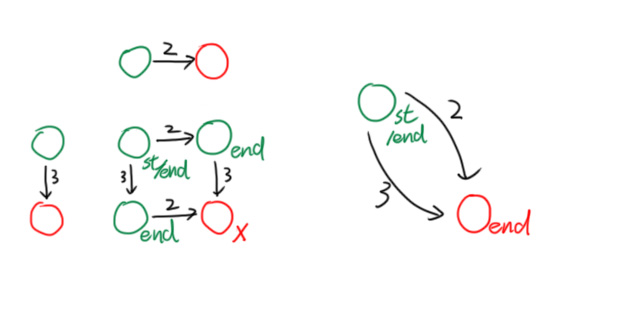 2
2
st/end
end
3
3
3
2
end
X
st
/end
2
3
end